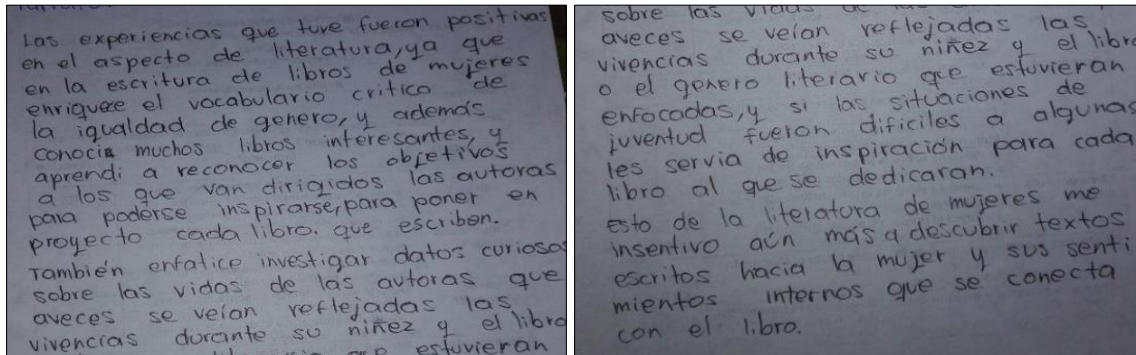 Las experiencias que tuve fueron positivas
en el aspecto de literatura, ya que
en la escritura de libros de mujeres
enriquece el vocabulario critico de
la igualdad de genero, y además
conocia muchos libros interesantes, y
aprendi a reconocer los objetivos
a los que van dirigidos las autoras
para poderse inspirarse, para poner en
proyecto cada libro. que escriben.
También enfatice investigar datos curiosos
sobre las vidas de las autoras que
aveces se veían reflejadas las
vivencias durante su niñez y el libro
estuvieran
sobre las vidas de las
aveces se veían reflejadas las
vivencias durante su niñez y el libro
o el genero literario que estuvieran
enfocadas, y si las situaciones de
juventud fueron dificiles a algunas
les servia de inspiración para cada
libro al que se dedicaran.
Esto de la literatura de mujeres me
insentivo aún más a descubrir textos
escritos hacia la mujer y sus senti
mientos internos que se conecta
con el libro.